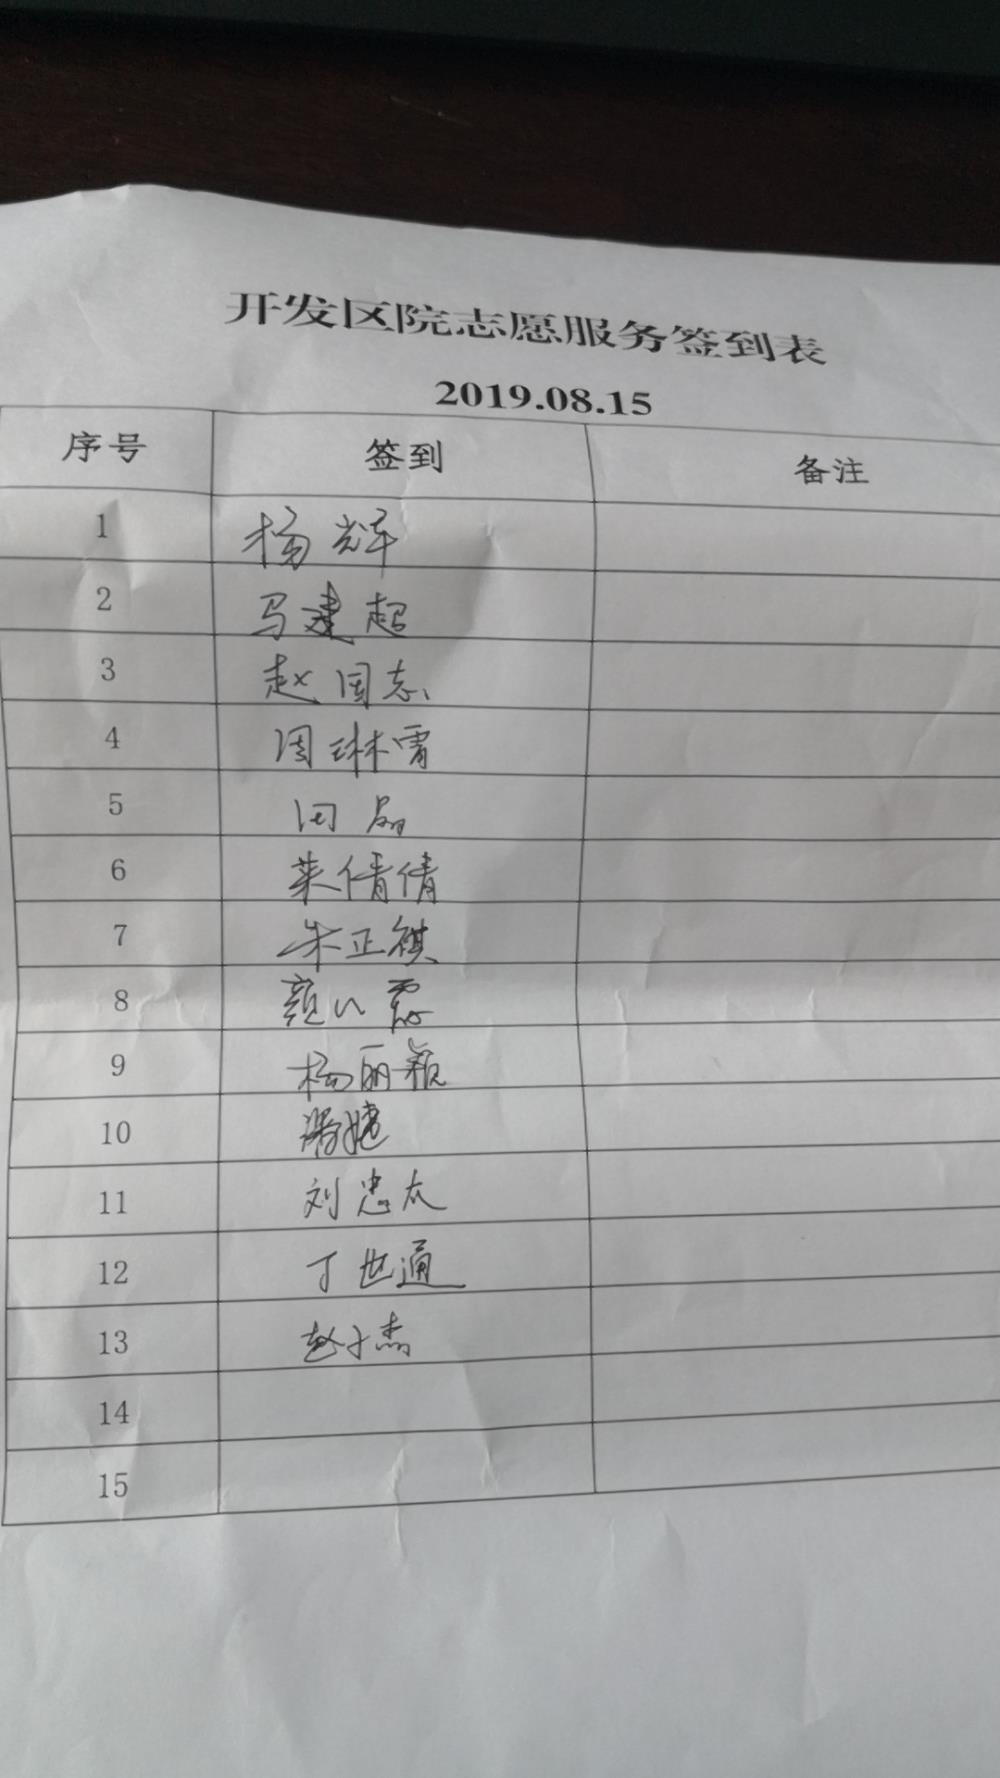 开发区院志愿服务签到表
2019.08.15
序号 签到 备注
1 杨辉
2 马建超
3 赵国志
4 周琳霄
5 田晶
6 荣倩倩
7 朱正祺
8 颜以霞
9 杨丽颖
10 潘婕
11 刘忠众
12 丁世通
13 赵子杰
14
15